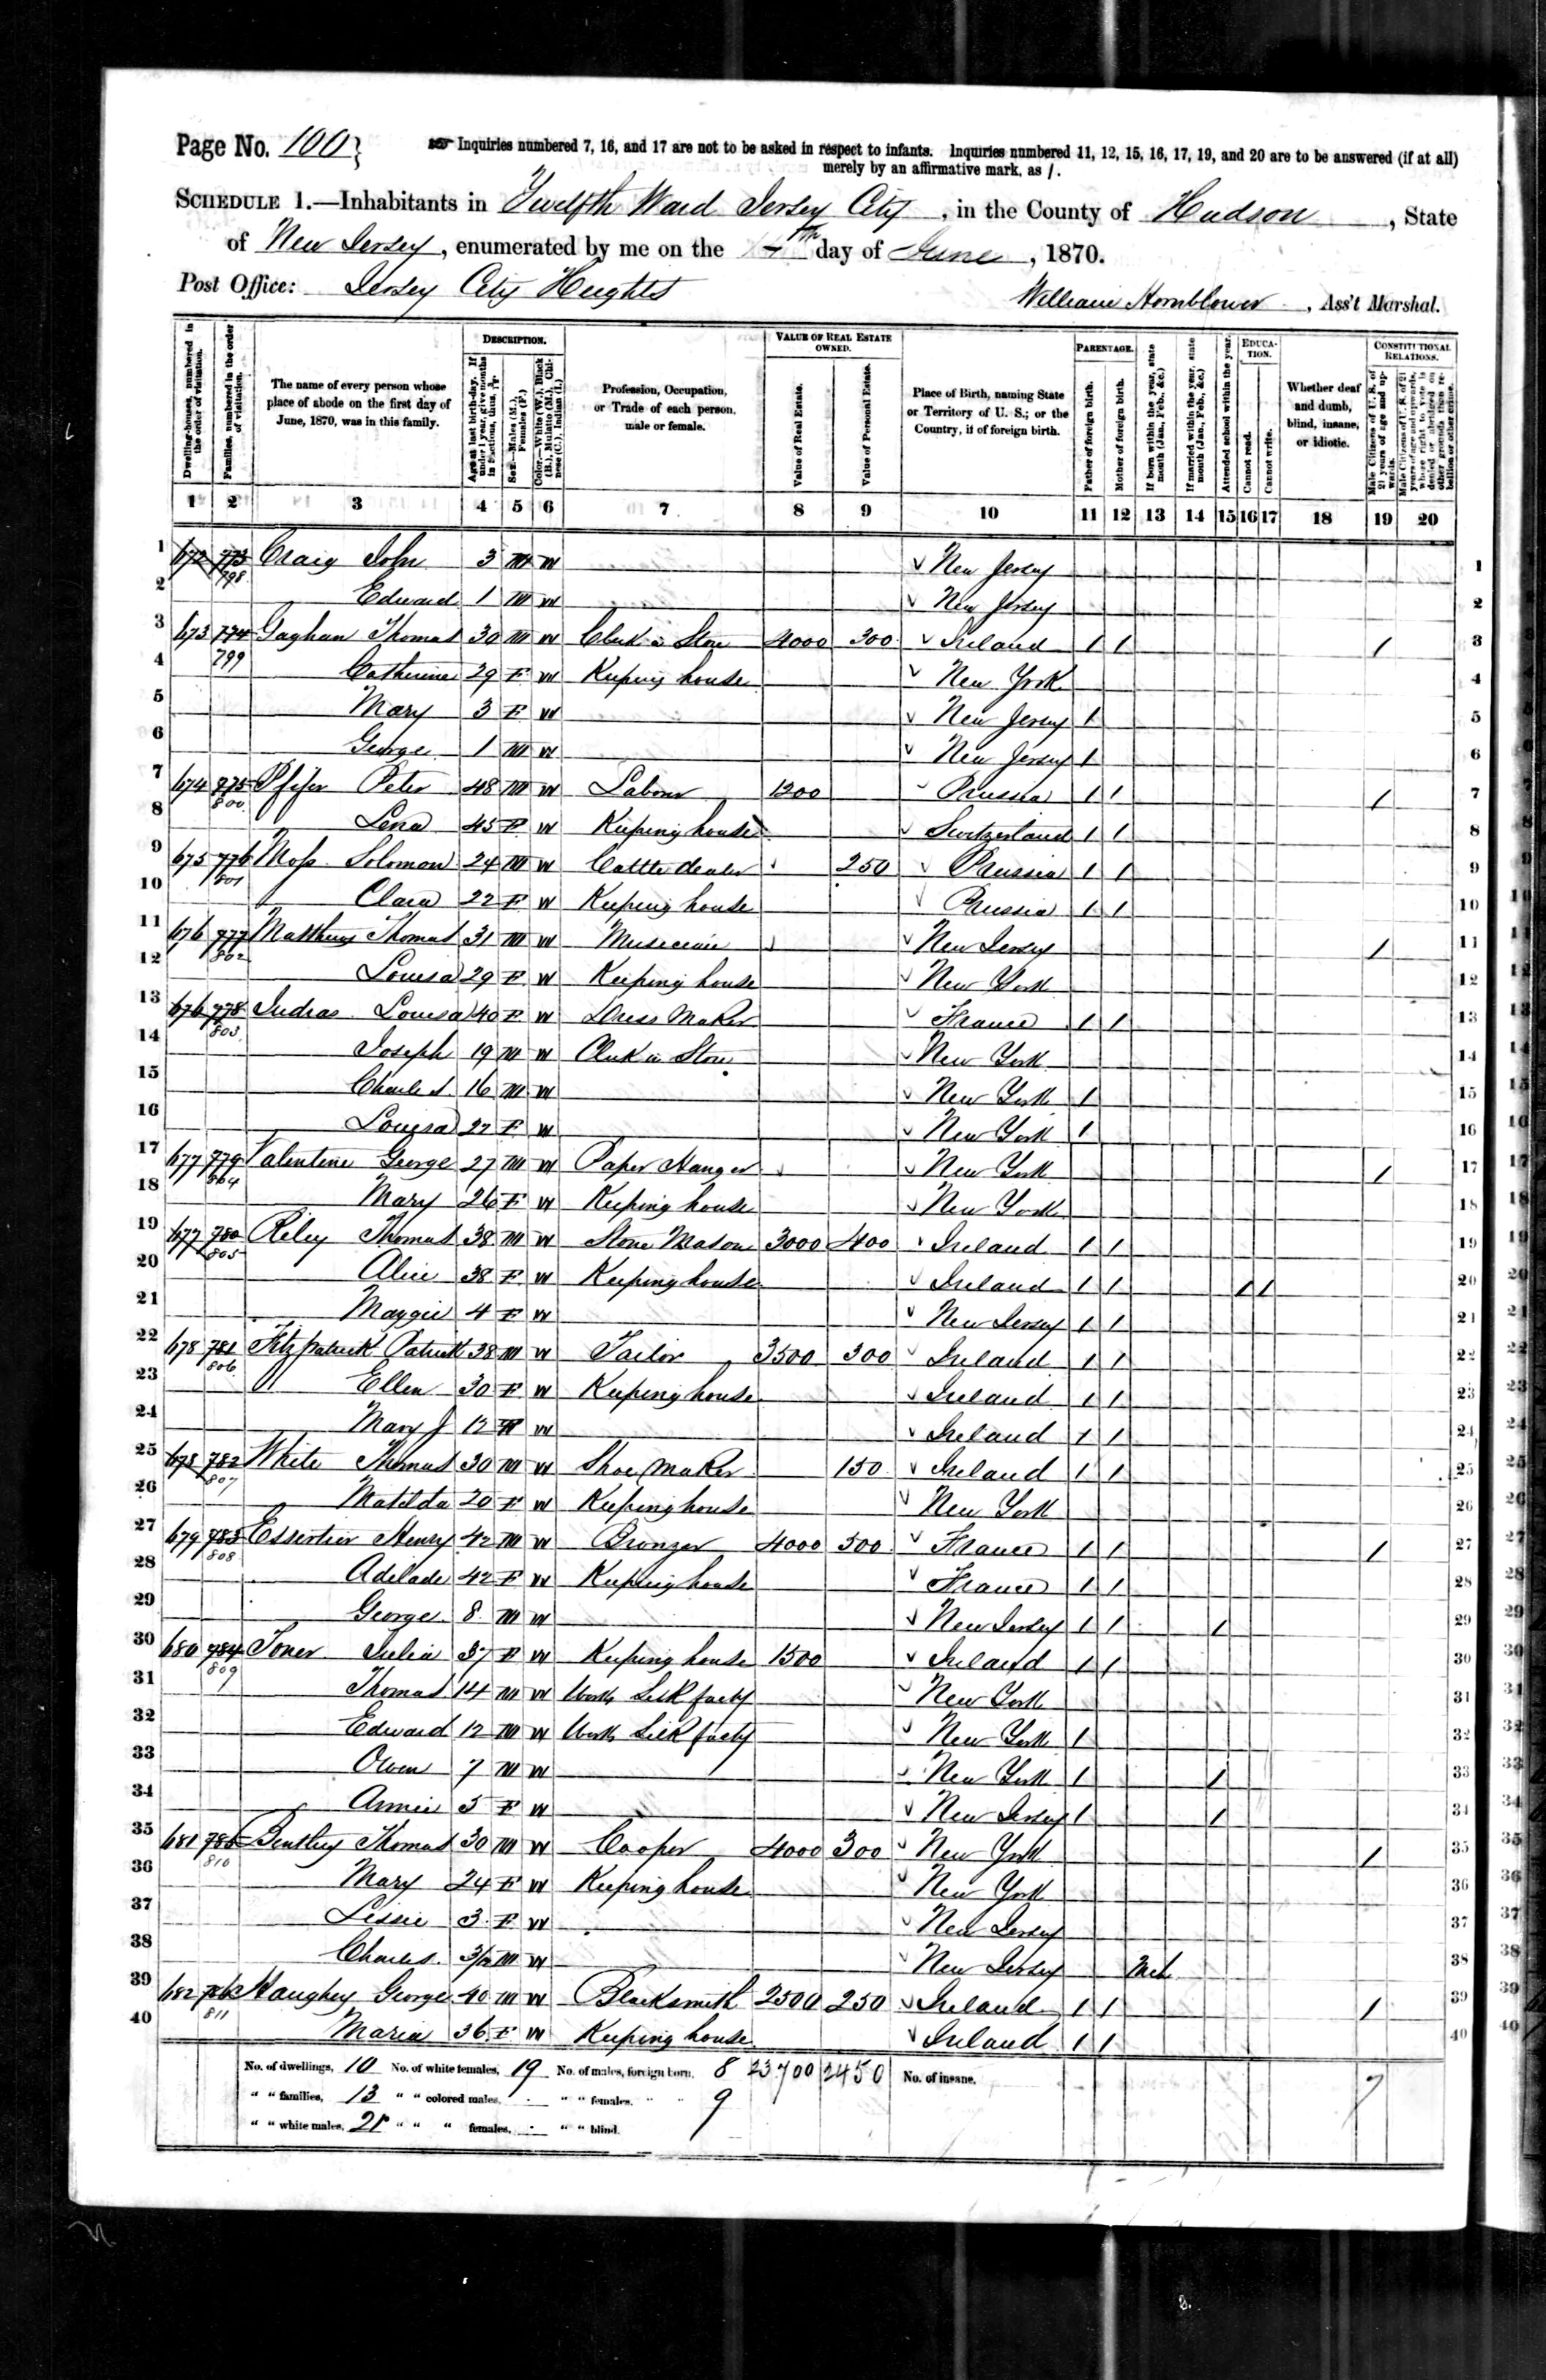 Page No. 100
Inquiries numbered 7, 16, and 17 are not to be asked in respect to infants. Inquiries numbered 11, 12, 15, 16, 17, 19, and 20 are to be answered (if at all)
merely by an affirmative mark, as /.
SCHEDULE 1.—Inhabitants in Twelfth Ward Jersey City, in the County of Hudson, State
of New Jersey, enumerated by me on the day of June, 1870.
Post Office: Jersey City Heights
William Hornblower, Ass't Marshal.
Dwelling-houses, numbered in the order of visitation.
Families, numbered in the order of visitation.
The name of every person whose place of abode on the first day of June, 1870, was in this family.
DESCRIPTION.
Age at last birth-day. If under 1 year, give months in fractions, thus,
Sex.—Males (M.), Females (F.)
Color.—White (W.), Black (B.), Mulatto (M.), Chinese (C.), Indian (I.)
Profession, Occupation, or Trade of each person, male or female.
VALUE OF REAL ESTATE OWNED.
Value of Real Estate.
Value of Personal Estate.
Place of Birth, naming State or Territory of U. S.; or the Country, if of foreign birth.
PARENTAGE.
Father of foreign birth.
Mother of foreign birth.
If born within the year, state month (Jan., Feb., &c.)
If married within the year, state month (Jan., Feb., &c.)
Attended school within the year.
EDUCATION.
Cannot read.
Cannot write.
Whether deaf and dumb, blind, insane, or idiotic.
CONSTITUTIONAL RELATIONS.
Male Citizens of U. S. of 21 years of age and upwards.
Male Citizens of U. S. of 21 years of age and upwards, whose right to vote is denied or abridged on other grounds than rebellion or other crime.
1 2 3 4 5 6 7 8 9 10 11 12 13 14 15 16 17 18 19 20
1 672 773 798 Craig John 3 M W New Jersey 1
2 Edward 1 M W New Jersey 2
3 673 774 799 Gaghan Thomas 30 M W Clerk in Store 4000 300 Ireland 1 1 1 3
4 Catherine 29 F W Keeping house New York 4
5 Mary 3 F W New Jersey 1 5
6 George 1 M W New Jersey 1 6
7 674 775 800 Pfifer Peter 48 M W Labour 1200 Prussia 1 1 1 7
8 Lena 45 F W Keeping house Switzerland 1 1 8
9 675 776 801 Moss Solomon 24 M W Cattle dealer 250 Prussia 1 1 9
10 Clara 22 F W Keeping house Prussia 1 1 10
11 676 777 802 Matthews Thomas 31 M W Musician New Jersey 1 11
12 Louisa 29 F W Keeping house New York 12
13 676 778 803 Judras Louisa 40 F W Dress Maker France 1 1 13
14 Joseph 19 M W Clerk in Store New York 14
15 Charles 16 M W New York 1 15
16 Louisa 22 F W New York 1 16
17 677 779 804 Valentine George 27 M W Paper Hanger New York 1 17
18 Mary 26 F W Keeping house New York 18
19 677 780 805 Riley Thomas 38 M W Stone Mason 3000 400 Ireland 1 1 19
20 Alice 38 F W Keeping house Ireland 1 1 1 1 20
21 Maggie 4 F W New Jersey 1 1 21
22 678 781 806 Fitzpatrick Patrick 38 M W Tailor 3500 300 Ireland 1 1 22
23 Ellen 30 F W Keeping house Ireland 1 1 23
24 Mary J 12 F W Ireland 1 1 24
25 678 782 807 White Thomas 30 M W Shoe Maker 150 Ireland 1 1 25
26 Matilda 20 F W Keeping house New York 26
27 679 783 808 Essertier Henry 42 M W Bronzer 4000 500 France 1 1 1 27
28 Adelade 42 F W Keeping house France 1 1 28
29 George 8 M W New Jersey 1 1 1 29
30 680 784 809 Toner Julia 37 F W Keeping house 1500 Ireland 1 1 30
31 Thomas 14 M W Works Silk facty New York 31
32 Edward 12 M W Works Silk facty New York 1 32
33 Owen 7 M W New York 1 1 33
34 Annie 5 F W New Jersey 1 1 34
35 681 785 810 Bentley Thomas 30 M W Cooper 4000 300 New York 1 35
36 Mary 24 F W Keeping house New York 36
37 Lessie 3 F W New Jersey 37
38 Charles 3/12 M W New Jersey Mch 38
39 682 811 Haughey George 40 M W Blacksmith 2500 250 Ireland 1 1 1 39
40 Maria 36 F W Keeping house Ireland 1 1 40
No. of dwellings, 10 No. of white females, 19 No. of males, foreign born, 8 23700 2450 No. of insane, 7
" " families, 13 " " colored males, " " females, " " 9
" " white males, 21 " " " females, " " blind.